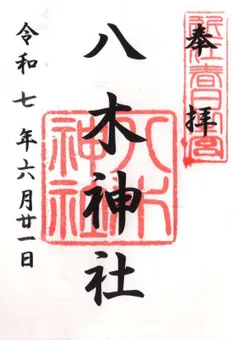 奉拝
八木神社
八木神社
令和七年六月廿一日